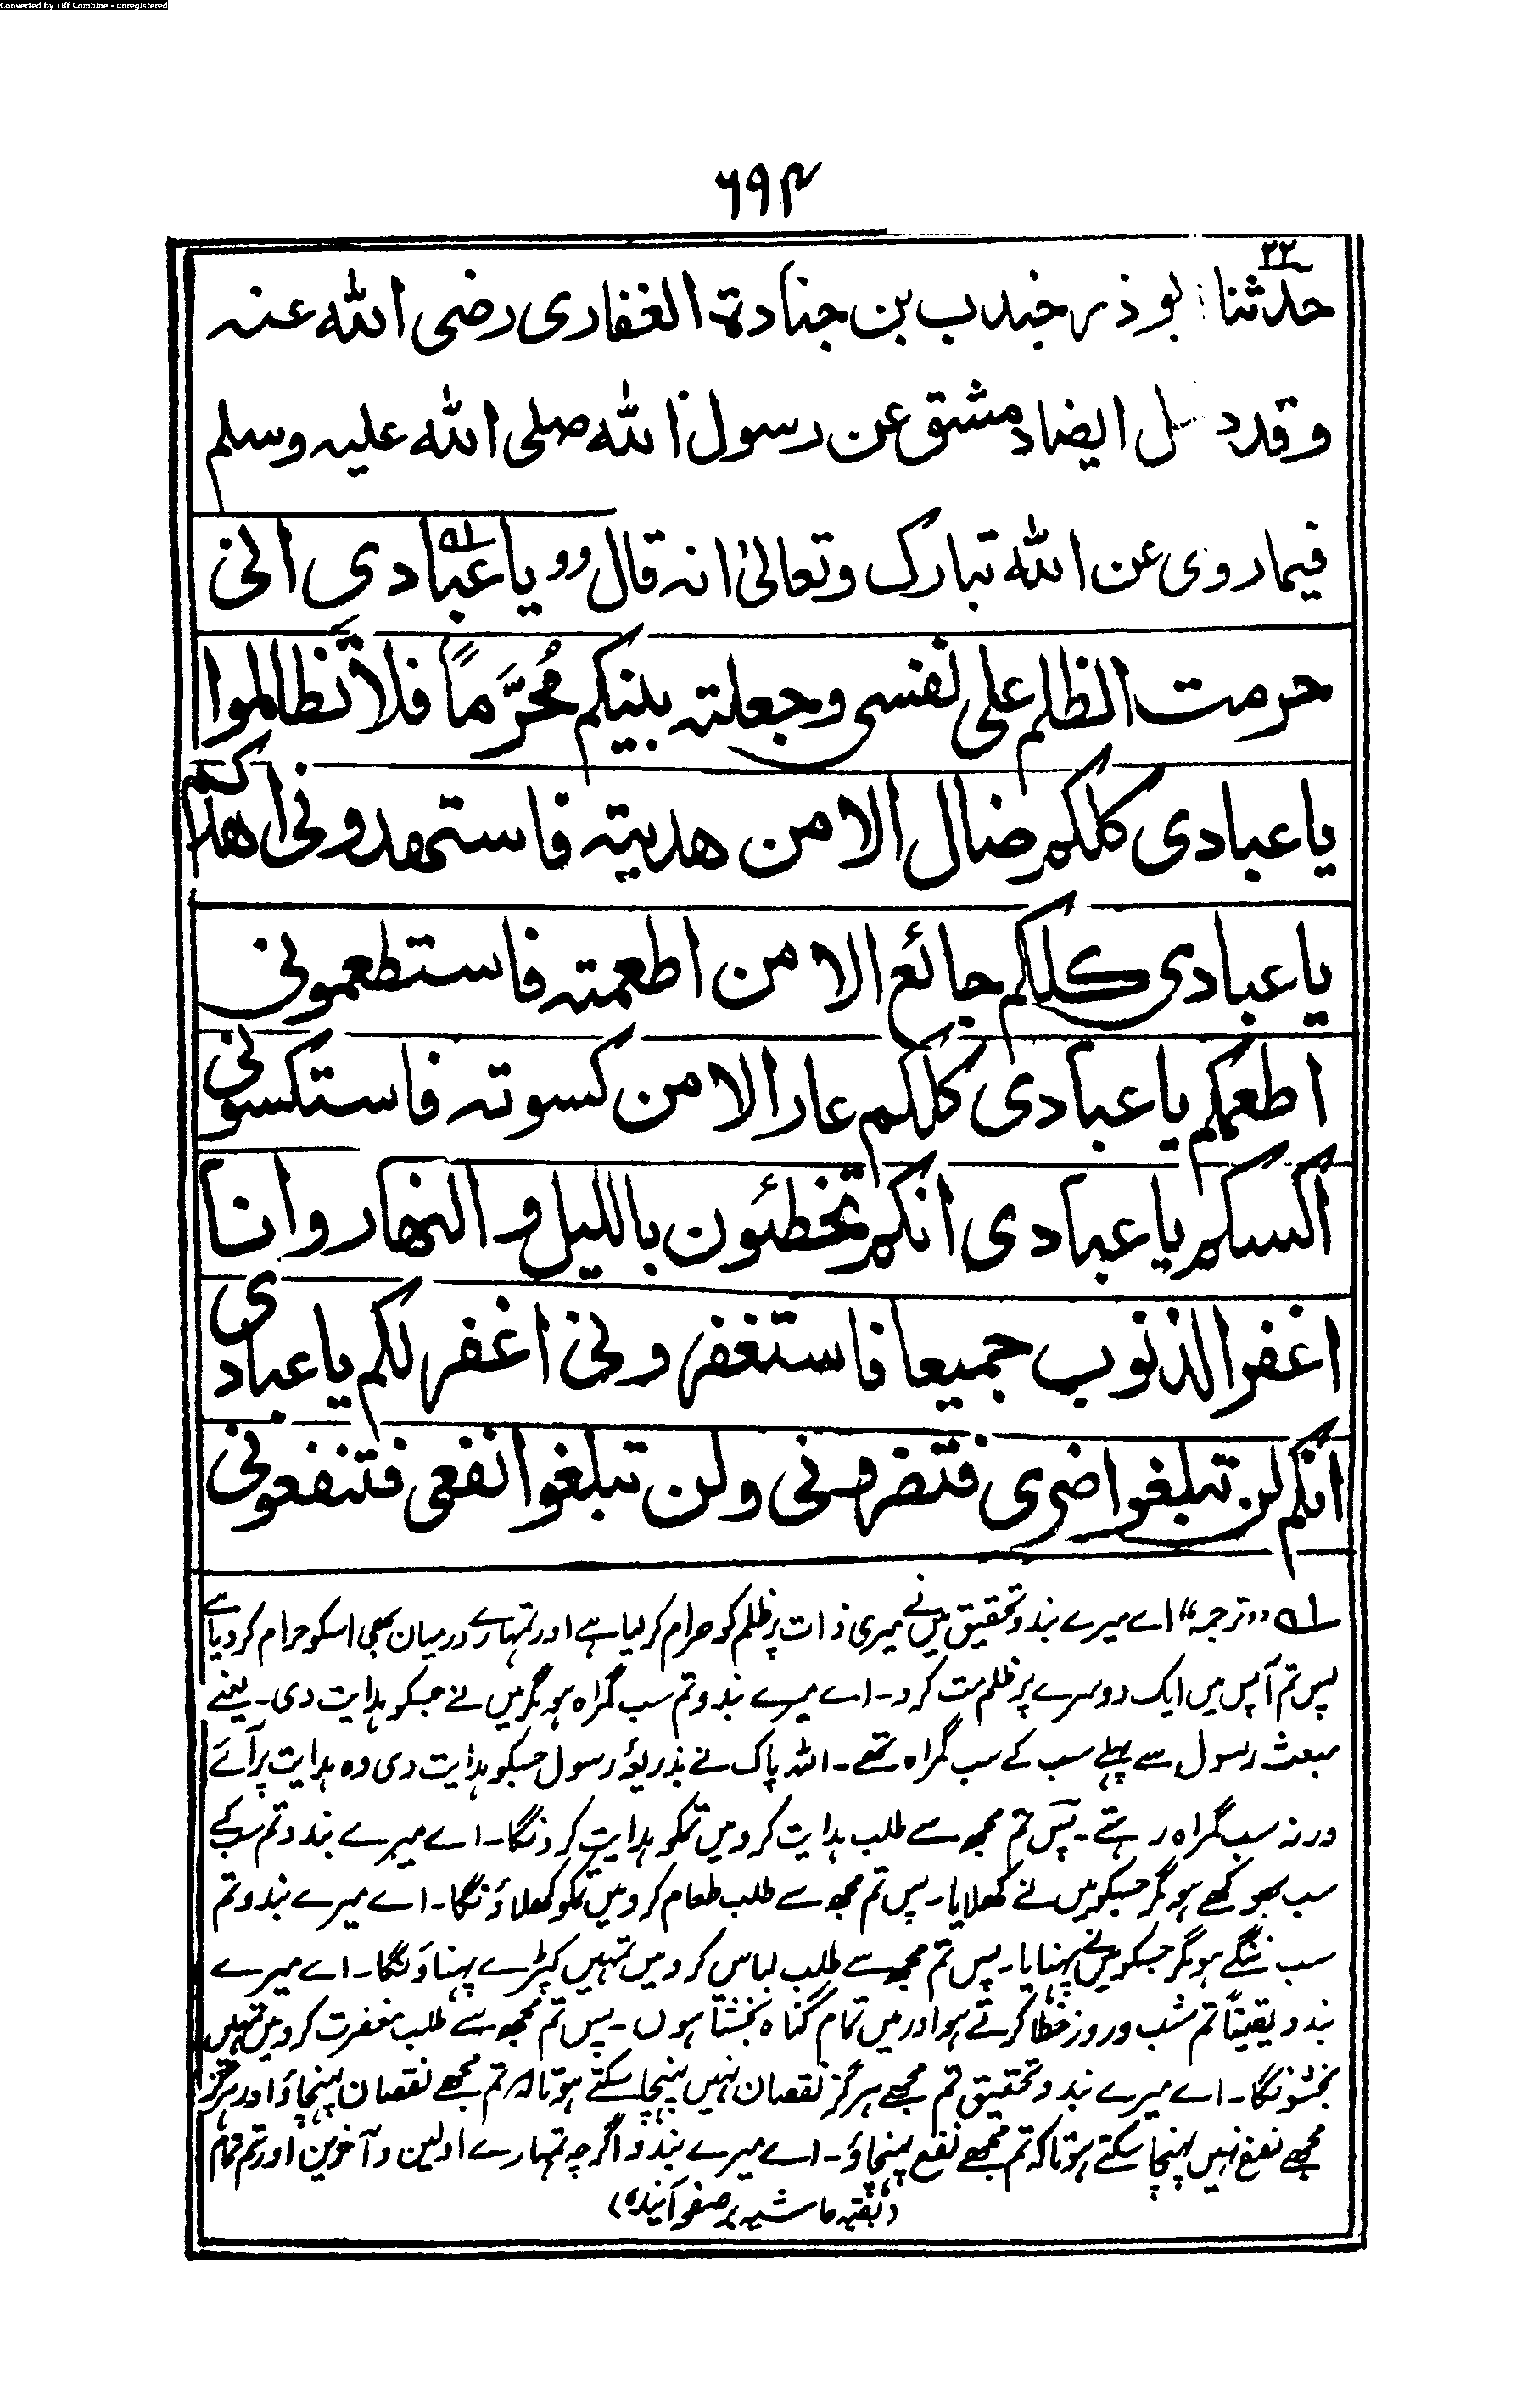 Converted by Tiff Combine - unregistered
۶۹۴
۲۲
حدثنا ابوذر جندب بن جنادة الغفاری رضی الله عنه
وقد دخل ایضا دمشق عن رسول الله صلی الله علیه وسلم
فیما روی عن الله تبارک وتعالیٰ انه قال وو یا عبادی انی
حرمت الظلم علی نفسی وجعلته بینکم مُحَرَّماً فلا تَظالموا
یا عبادی کلکم ضال الا من هدیته فاستهدونی اهدکم
یا عبادی کلکم جائع الا من اطعمته فاستطعمونی
اطعمکم یا عبادی کلکم عار الا من کسوته فاستکسونی
اکسکم یا عبادی انکم تخطئون باللیل و النهار وانا
اغفر الذنوب جمیعا فاستغفرونی اغفر لکم یا عبادی
انکم لن تبلغوا ضری فتضرونی ولن تبلغوا نفعی فتنفعونی
۱؎ ”ترجمہ“ اے میرے بندو تحقیق میں نے میری ذات پر ظلم کو حرام کر لیا ہے اور تمہارے درمیان بھی اسکو حرام کر دیا ہے
پس تم آپس میں ایک دوسرے پر ظلم مت کرو۔ اے میرے بندو تم سب گمراہ ہو مگر میں نے جسکو ہدایت دی۔ یعنے
مبعث رسول سے پہلے سب کے سب گمراہ تھے۔ اللہ پاک نے بذریعۂ رسول جسکو ہدایت دی وہ ہدایت پر آئے
ورنہ سب گمراہ رہتے۔ پس تم مجھ سے طلب ہدایت کرو میں تمکو ہدایت کرونگا۔ اے میرے بندو تم سب کے
سب بھوکے ہو مگر جسکو میں نے کھلایا۔ پس تم مجھ سے طلب طعام کرو میں تمکو کھلاؤنگا۔ اے میرے بندو تم
سب ننگے ہو مگر جسکو میں نے پہنایا۔ پس تم مجھ سے طلب لباس کرو میں تمہیں کپڑے پہناؤنگا۔ اے میرے
بندو یقیناً تم شب و روز خطا کرتے ہو اور میں تمام گناہ بخشتا ہوں۔ پس تم مجھ سے طلب مغفرت کرو میں تمہیں
بخشونگا۔ اے میرے بندو تحقیق تم مجھے ہرگز نقصان نہیں پہنچا سکتے ہو تاکہ تم مجھے نقصان پہنچاؤ اور ہرگز
مجھے نفع نہیں پہنچا سکتے ہو تاکہ تم مجھے نفع پہنچاؤ۔ اے میرے بندو اگرچہ تمہارے اولین و آخرین اور تم تمام
(بقیہ حاشیہ بر صفحہ آئندہ)